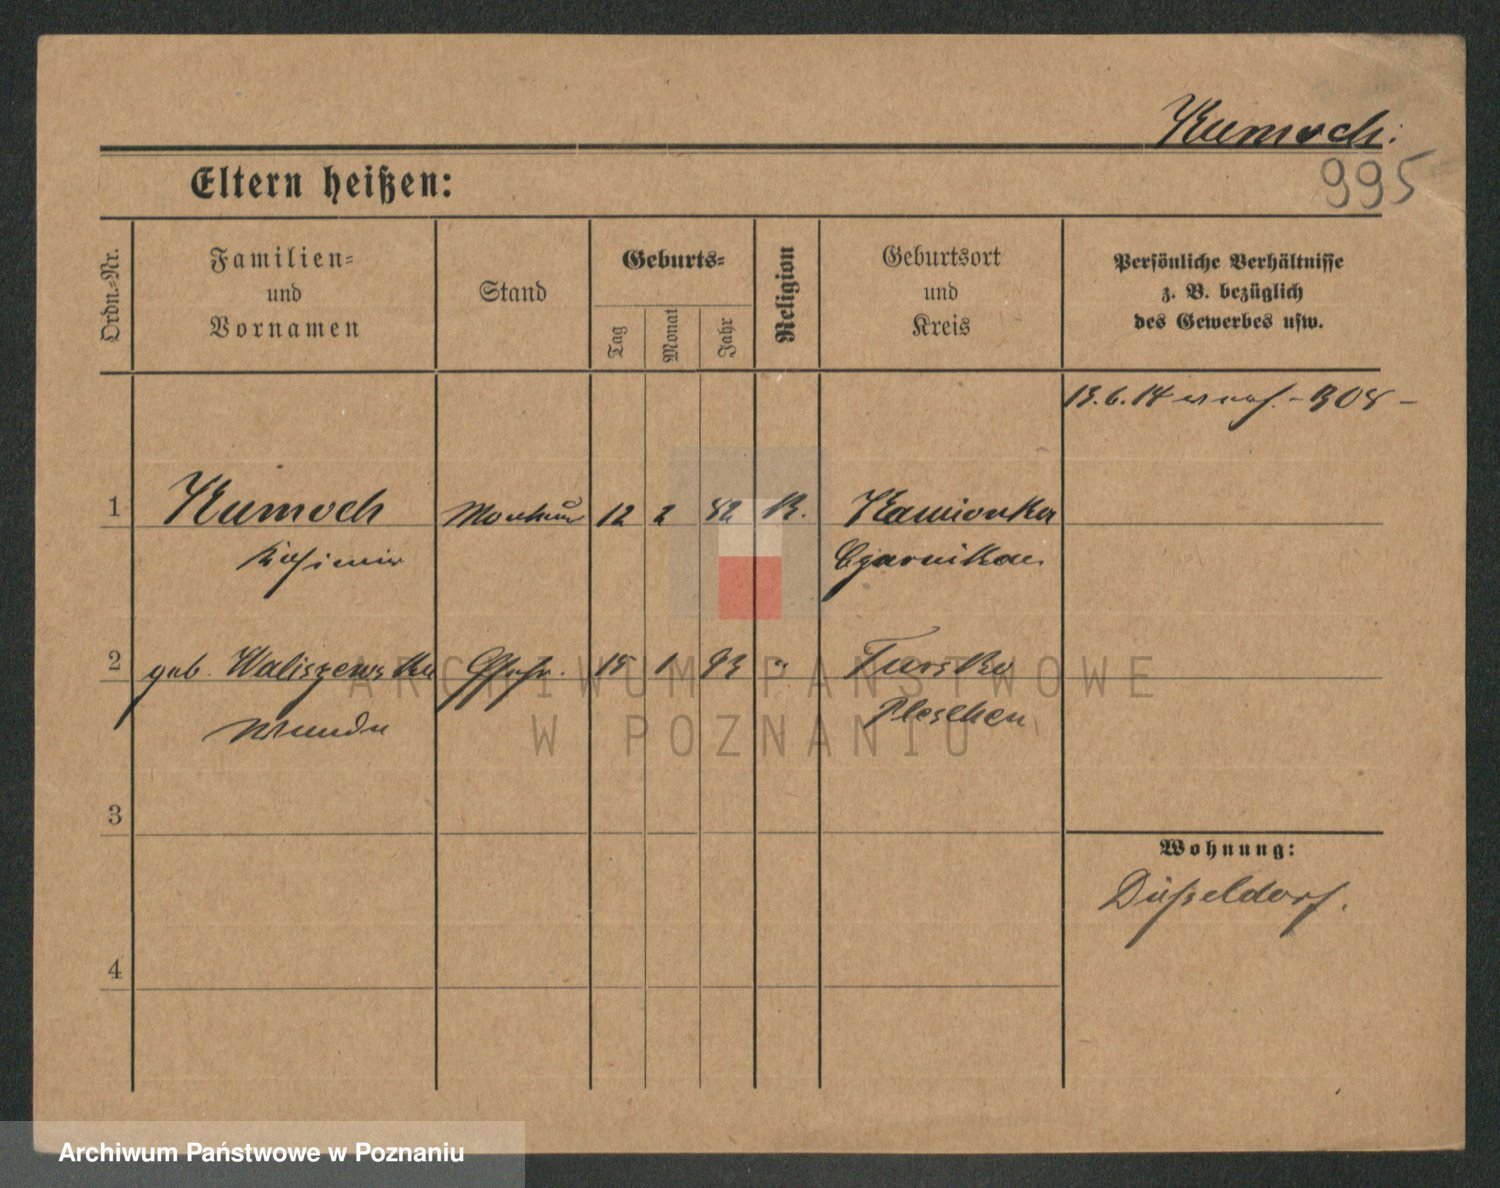 Kumoch.
995
Eltern heißen:
Ordn.-Nr.
Familien-
und
Vornamen
Stand
Geburts-
Tag
Monat
Jahr
Religion
Geburtsort
und
Kreis
Persönliche Verhältnisse
z. B. bezüglich
des Gewerbes usw.
13.6.14
1 Kumoch Monteur 12 2 82 K. Kamionka
Kasimir Czarnikau
2 geb. Waliszewska Ehefr. 15 1 93 " Tursko
Wanda Pleschen
3
Wohnung:
Düßeldorf.
4
ARCHIWUM PAŃSTWOWE
W POZNANIU
Archiwum Państwowe w Poznaniu